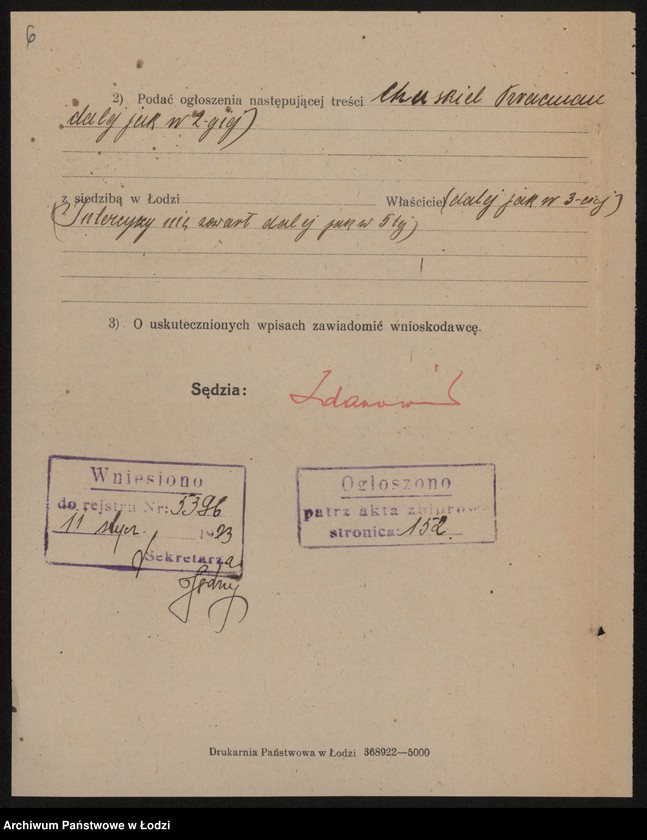 6
2) Podać ogłoszenia następującej treści Chaskiel
dalej jak w 2-giej)
z siedzibą w Łodzi Właściciel (dalej jak w 3-ciej)
(Intercyzy nie zawarł dalej jak w 5tej)
3) O uskutecznionych wpisach zawiadomić wnioskodawcę.
Sędzia:
Wniesiono
do rejstru Nr: 5396
11 stycz. 1923
Sekretarz
Ogłoszono
patrz akta zbiorowe
stronica: 152.
Drukarnia Państwowa w Łodzi 368922—5000
Archiwum Państwowe w Łodzi